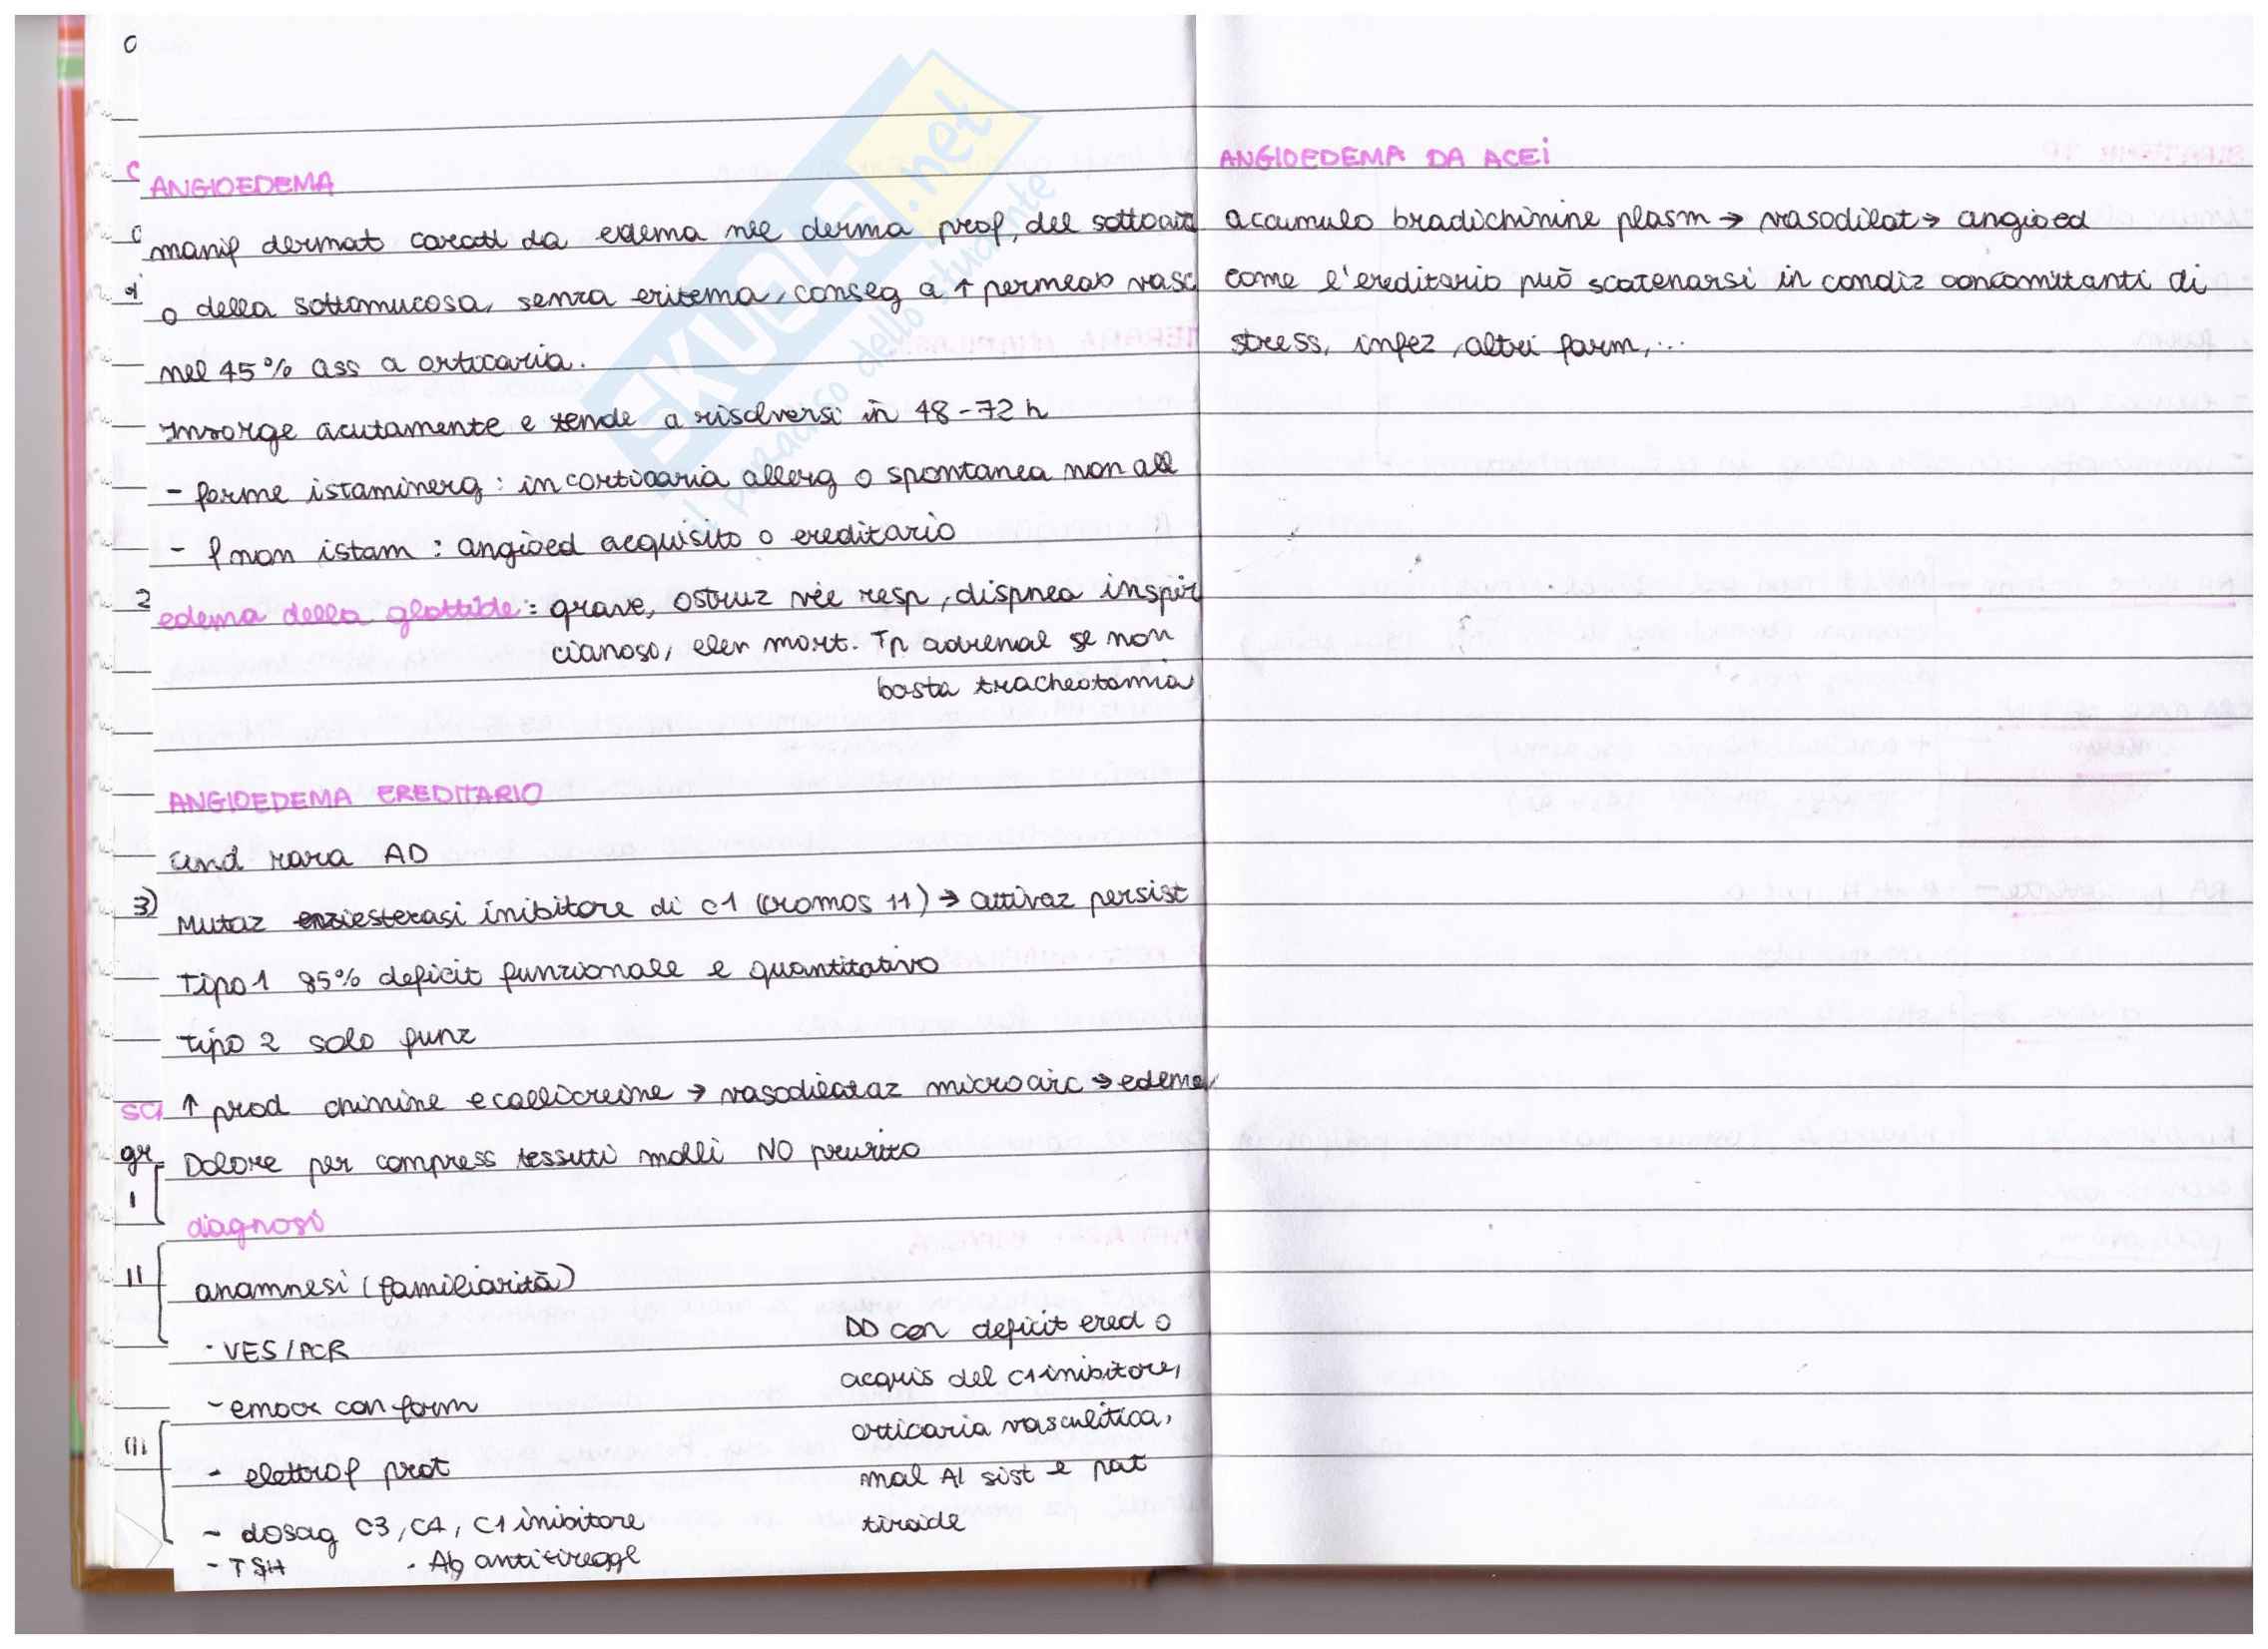 ANGIOEDEMA
manif dermat caratt da edema nel derma prof, del sottocut
o della sottomucosa, senza eritema, conseg a ↑ permeab vasc
nel 45% ass a orticaria.
Insorge acutamente e tende a risolversi in 48-72 h
- forme istaminerg: in orticaria allerg o spontanea non all
- f non istam: angioed acquisito o ereditario
edema della glottide: grave, ostruz vie resp, dispnea inspir
cianosi, elev mort. Tp adrenal se non
basta tracheotomia
ANGIOEDEMA EREDITARIO
cond rara AD
Mutaz esterasi inibitore di C1 (cromos 11) → attivaz persist
Tipo 1 85% deficit funzionale e quantitativo
tipo 2 solo funz
↑ prod chinine e callicreine → vasodilataz microcirc → edema
Dolore per compress tessuti molli NO prurito
diagnosi
anamnesi (familiarità)
· VES/PCR
- emocr con form
- elettrof prot
- dosag C3, C4, C1 inibitore
- TSH - Ab antitireogl
DD con deficit ered o
acquis del C1 inibitore,
orticaria vasculitica,
mal AI sist e pat
tiroide
2
3)
gr
I
II
III
ANGIOEDEMA DA ACEi
accumulo bradichinine plasm → vasodilat → angioed
come l'ereditario può scatenarsi in condiz concomitanti di
stress, infez, altri farm,...
SKUOLA.net
il paradiso dello studente